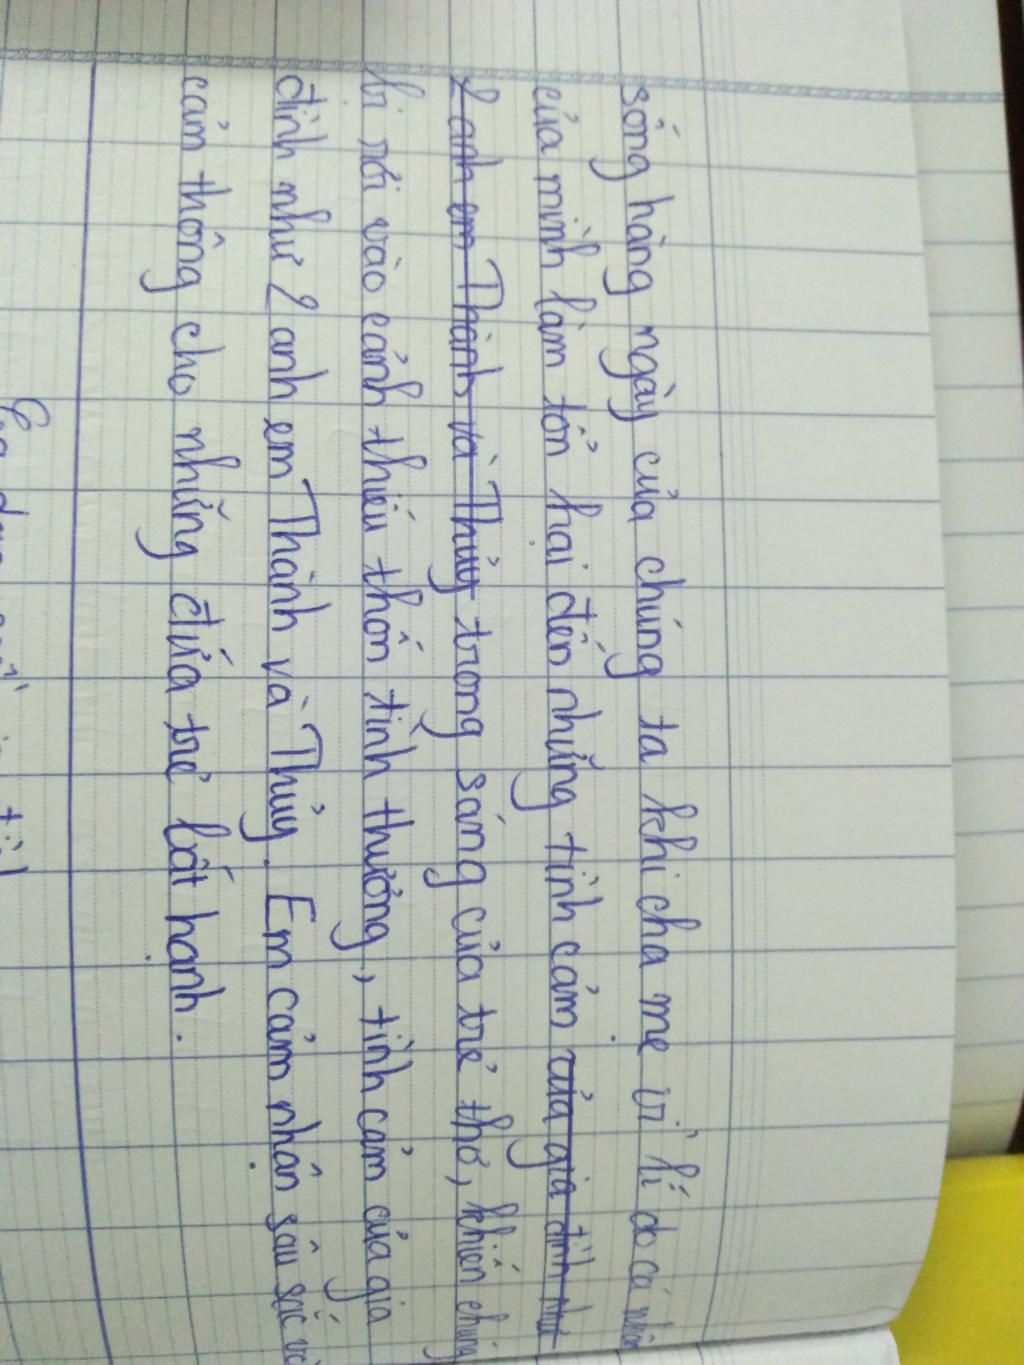 sống hàng ngày của chúng ta khi cha mẹ vì lí do cá nhân
của mình làm tổn hại đến những tình cảm của gia đình như
2 anh em Thành và Thủy trong sáng của trẻ thơ, khiến chúng
bị rơi vào cảnh thiếu thốn tình thương, tình cảm của gia
đình như 2 anh em Thành và Thủy. Em cảm nhận sâu sắc và
cảm thông cho những đứa trẻ bất hạnh.